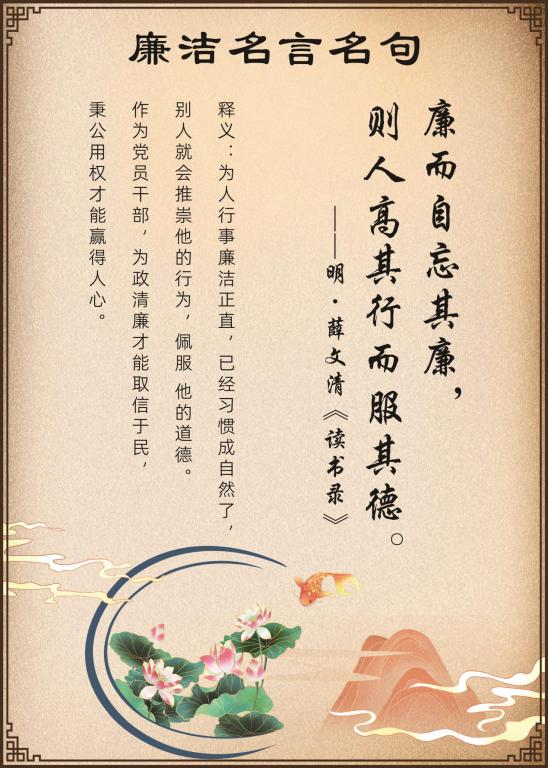 廉洁名言名句
廉而自忘其廉，
则人高其行而服其德。
——明·薛文清《读书录》
释义：为人行事廉洁正直，已经习惯成自然了，
别人就会推崇他的行为，佩服 他的道德。
作为党员干部，为政清廉才能取信于民，
秉公用权才能赢得人心。